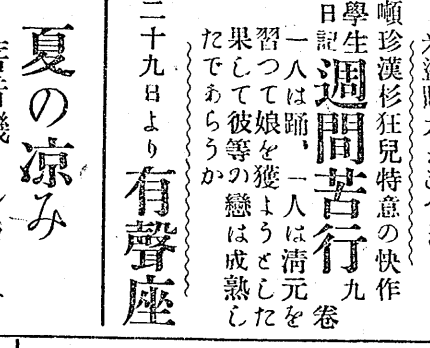 頓珍漢杉狂兒特意の快作
學生
日記
週間苦行
九卷
一人は踊、一人は淸元を
習つて娘を獲ようとした
果して彼等の戀は成熟し
たであらうか
二十九日より
有聲座
夏の涼み